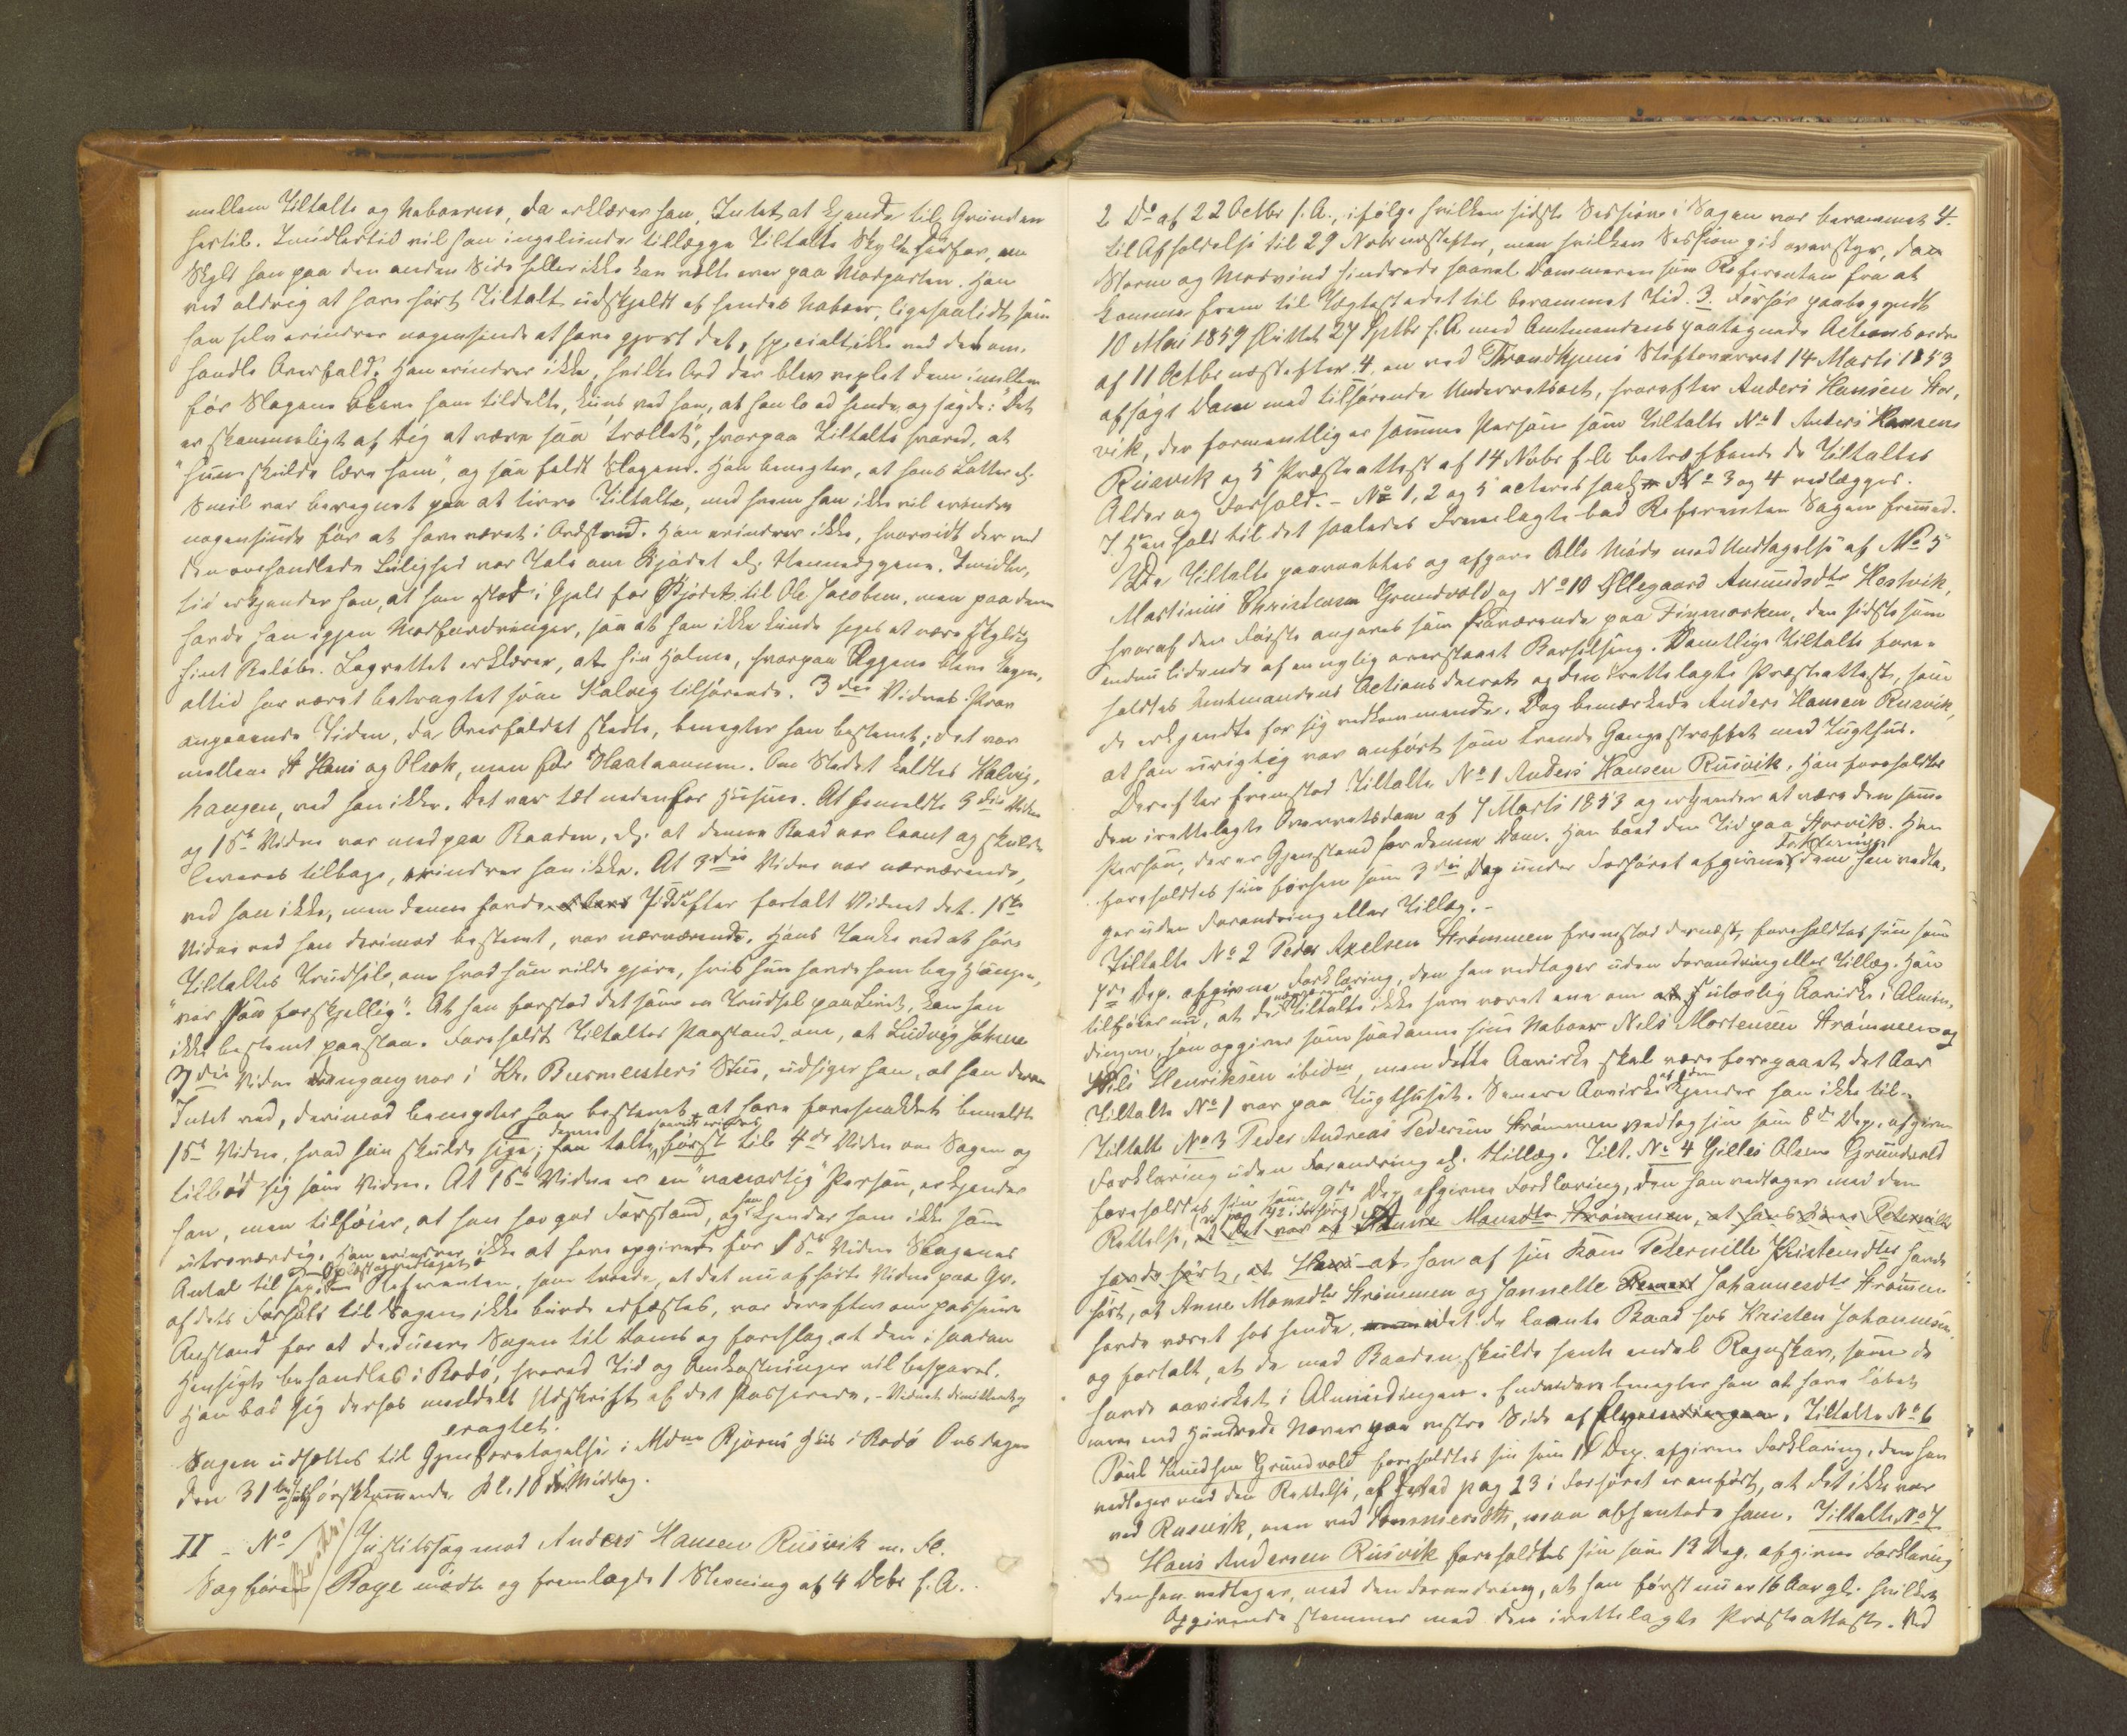 mellem Tiltalte og Naboerne, da erklærer han, Intet at kjende til Grunden
hertil. Imidlertid vil han ingenlunde tillægge Tiltalte Skylden derfor, en
Skyld han paa den anden Side heller ikke kan vælte over paa Modparten. Han
ved aldrig at have hørt Tiltalte udskjeldt af hendes Naboer, ligesaalidt som
han selv erindrer nogensinde at have gjort det, specielt ikke ved det om-
handlede Overfald. Han erindrer ikke, hvilke Ord der blev vexlet dem imellem
før Slagene bleve ham tildelte, kuns ved han, at han lo ad hende og sagde: "Det
er skammeligt af Dig at være saa trollet", hvorpaa Tiltalte svared, at
"hun skulde lære ham", og saa faldt Slagene. Han benegter, at hans Latter el.
Smil var beregnet paa at tirre Tiltalte, med hvem han ikke vil erindre
nogensinde før at have været i Ordstrid. Han erindrer ikke, hvorvidt der ved
den omhandlede Leilighed var Tale om Kjødet el. Eggene. Imidler-
tid erkjender han, at han stod i Gjeld for Kjødet til Ole Jacobsen, men paa denne
havde han igjen Modfordringer, saa at han ikke kunde siges at være skyldig
hint Beløb. Lagrettet erklærer, at hin Holme, hvorpaa Eggene bleve tagne,
altid har været betragtet som Kalvig tilhørende. 3die Vidnes Prov
angaaende Tiden, da Overfaldet skedte, benegter han bestemt; det var
mellem St Hans og Olsok, men før Slaataannen. Om Stedet kaldtes Kalvig-
haugen, ved han ikke. Det var tæt nedenfor Husene. At hemeldte 3die Vidne
og 15de Vidne var med paa Baaden, el. at denne Baad var laant og skulde
leveres tilbage, erindrer han ikke. At 3die Vidne var nærværende,
ved han ikke, men denne havde siden efter fortalt Vidnet det. 15de
Vidne ved han derimod bestemt, var nærværende. Hans Tanke ved at høre
Tiltaltes Trudsel, om hvad hun vilde gjøre, hvis hun havde ham bag Haugen,
"var saa forskjellig". At han forstod det som en Trudsel paa Livet, kan han
ikke bestemt paastaa. Foreholdt Tiltaltes Paastand om, at Ludvig Johnsen
7die Vidne dengang var i Kr. Burmeisters Stue, udsiger han, at han derom
Intet ved, derimod benegter han bestemt at have foresnakket bemeldte
15de Vidne, hvad han skulde sige; denne talte, saavidt erindres, først til 4de Vidne om Sagen og
tilbød sig som Vidne. At 15de Vidne er en "rararartig" Person, erkjender
han, men tilføier, at han har god Forstand, og han kjender ham ikke som
utroværdig. Han erindrer ikke at have opgivet for 15de Vidne Slagenes
Antal til Oplæst og vedtaget. Referenten, som troede, at det nu afhørte Vidne paa Gr.
af dets Forhold til Sagen ikke burde edfæstes, var derefter om passende
Anstand for at deducere Sagen til Doms og foreslog, at den i saadan
Hensigt behandles i Rødø, hvorved Tid og Omkostninger vil bespares.
Han bad sig derhos meddelt Udskrift af det Passerede. - Vidnet dimitteret og
eragtet.
Sagen udsættes til Gjenforetagelse i Mdme Bjørns Huus i Rodø Onsdagen
den 31te førstkommende Kl. 10 Fr Middag.
II - No / Justitssag mod Anders Hansen Rusvik m. Fl.
Sagfører Roye mødte og fremlagde 1 Stevning af 4 Debr f. A.
2 Do af 22 Octbr f. A., ifølge hvilken sidste Session i Sagen var berammet
til Afholdelse til 29 Novbr næstefter, men hvilken Session gik overstyr, da
Storm og Modvind hindrede saavel Dommeren som Referenten fra at
komme frem til Tægtestedet til berammet Tid. 3. Forhør paabegyndt
10 Mai 1859 sluttet 27 Septbr s. A. med Amtmandens paategnede Actionsordre
af 11 Octbr næstefter. 4. en ved Throndhjems Stiftsoverret 14 Marts 1853
afsagt Dom med tilhørende Underretsact, hvorefter Anders Hansen Hor-
vik, der formentlig er samme Person som Tiltalte No 1 Anders Hansen
Rusvik og 5 Præsteattest af 14 Novbr f. A. betræffende de Tiltaltes
Alder og Forhold. - No 1, 2 og 5 acteres hvorhos No 3 og 4 vedlægges.
I Henhold til det saaledes Fremlagte bad Referenten Sagen fremmed.
De Tiltalte paaraabtes og afgave Alle Møde med Undtagelse af No 5
Martinus Christensen Grundvold og No 10 Ellegaard Amundsdtr Hestvik,
hvoraf den Første angaves som fraværende paa Finmarken, den sidste som
endnu lidende af en nylig overstaaet Barselseng. Samtlige Tiltalte fore-
holdtes Amtmandens Actionsdecret og den irettelagte Præsteattest, som
de erkjendte for sig vedkommende. Dog bemærkede Anders Hansen Rusvik,
at han urigtig var anført som trende Gange straffet med Tugthus.
Derefter fremstod Tiltalte No 1 Anders Hansen Rusvik. Han foreholdtes
den irettelagte Overretsdom af 7 Marts 1853 og erkjender at være den samme
Person, der er Gjenstand for denne Dom. Han boede den Tid paa Horvik. Han
foreholdtes sin forhen som 3die Dep. under Forhøret afgivne Forklaring, den han vedta-
ger uden Forandring eller Tillæg. -
Tiltalte No 2 Peder Axelsen Strømmen fremstod dernæst, foreholdtes sin som
7de Dep. afgivne Forklaring, den han vedtager uden Forandring eller Tillæg. Han
tilføier nu, at de nuværende Tiltalte ikke have været ene om ulovlig Aavirke i Almin-
dingen, han opgiver som saadanne sine Naboer Nils Mortensen Strømmen og
Nils Henriksen ibidm, men dette Aavirke skal være foregaaet det Aar
Tiltalte No 1 var paa Tugthuset. Senere Aavirke af dem kjender han ikke til.
Tiltalte No 3 Peder Andreas Pedersen Strømmen vedtog sin som 8de Dep. afgivne
Forklaring uden Forandring el. Tillæg. Tilt. No 4 Gilles Olsen Grundvold
foreholdtes sin som 9de Dep. afgivne Forklaring, den han vedtager med den
Rettelse, (pag 42 i Forhør) at det var af Anne Monsdtr Strømmen, at hans Kone Peternille
havde hørt, at Hans at han af sin Kone Peternille Kristensdtr havde
hørt, at Anne Monsdtr Strømmen og Jannette Johannesdtr Strømmen
havde været hos hende, idet de laante Baad hos Kristen Johannesen,
og fortalt, at de med Baaden skulde hente endel Rognskav, som de
havde aavirket i Almindingen. Endvidere benegter han at have løbet
mere end hundrede Næver paa vestre Side af Almindingen. Tiltalte No 6
Poul Knudsen Grundvold foreholdtes sin som 11 Dep. afgivne Forklaring, den han
vedtager med den Rettelse, af hvad pag 23 i Forhøret er anført, at det ikke var
ved Rusvik, men ved Sommerseth, man afhentede ham. Tiltalte No 7
Hans Andersen Rusvik foreholdtes sin som 12 Dep. afgivne Forklaring
den han vedtager, med den Forandring, at han først nu er 16 Aar gl. hvilket
Opgivende stemmer med den irettelagte Præsteattest. Ved